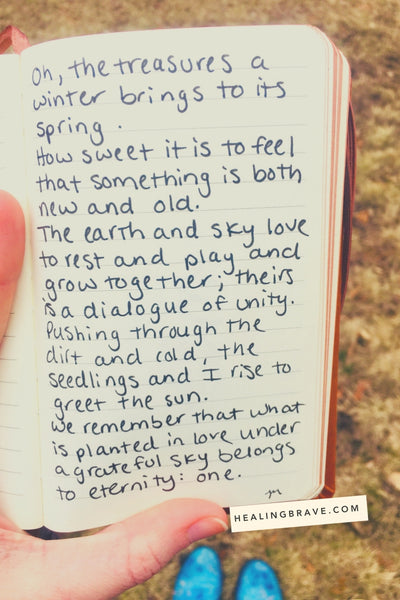 Oh, the treasures a
winter brings to its
spring.
How sweet it is to feel
that something is both
new and old.
The earth and sky love
to rest and play and
grow together; theirs
is a dialogue of unity.
Pushing through the
dirt and cold, the
seedlings and I rise to
greet the sun.
We remember that what
is planted in love under
a grateful sky belongs
to eternity: one.
HEALINGBRAVE.COM